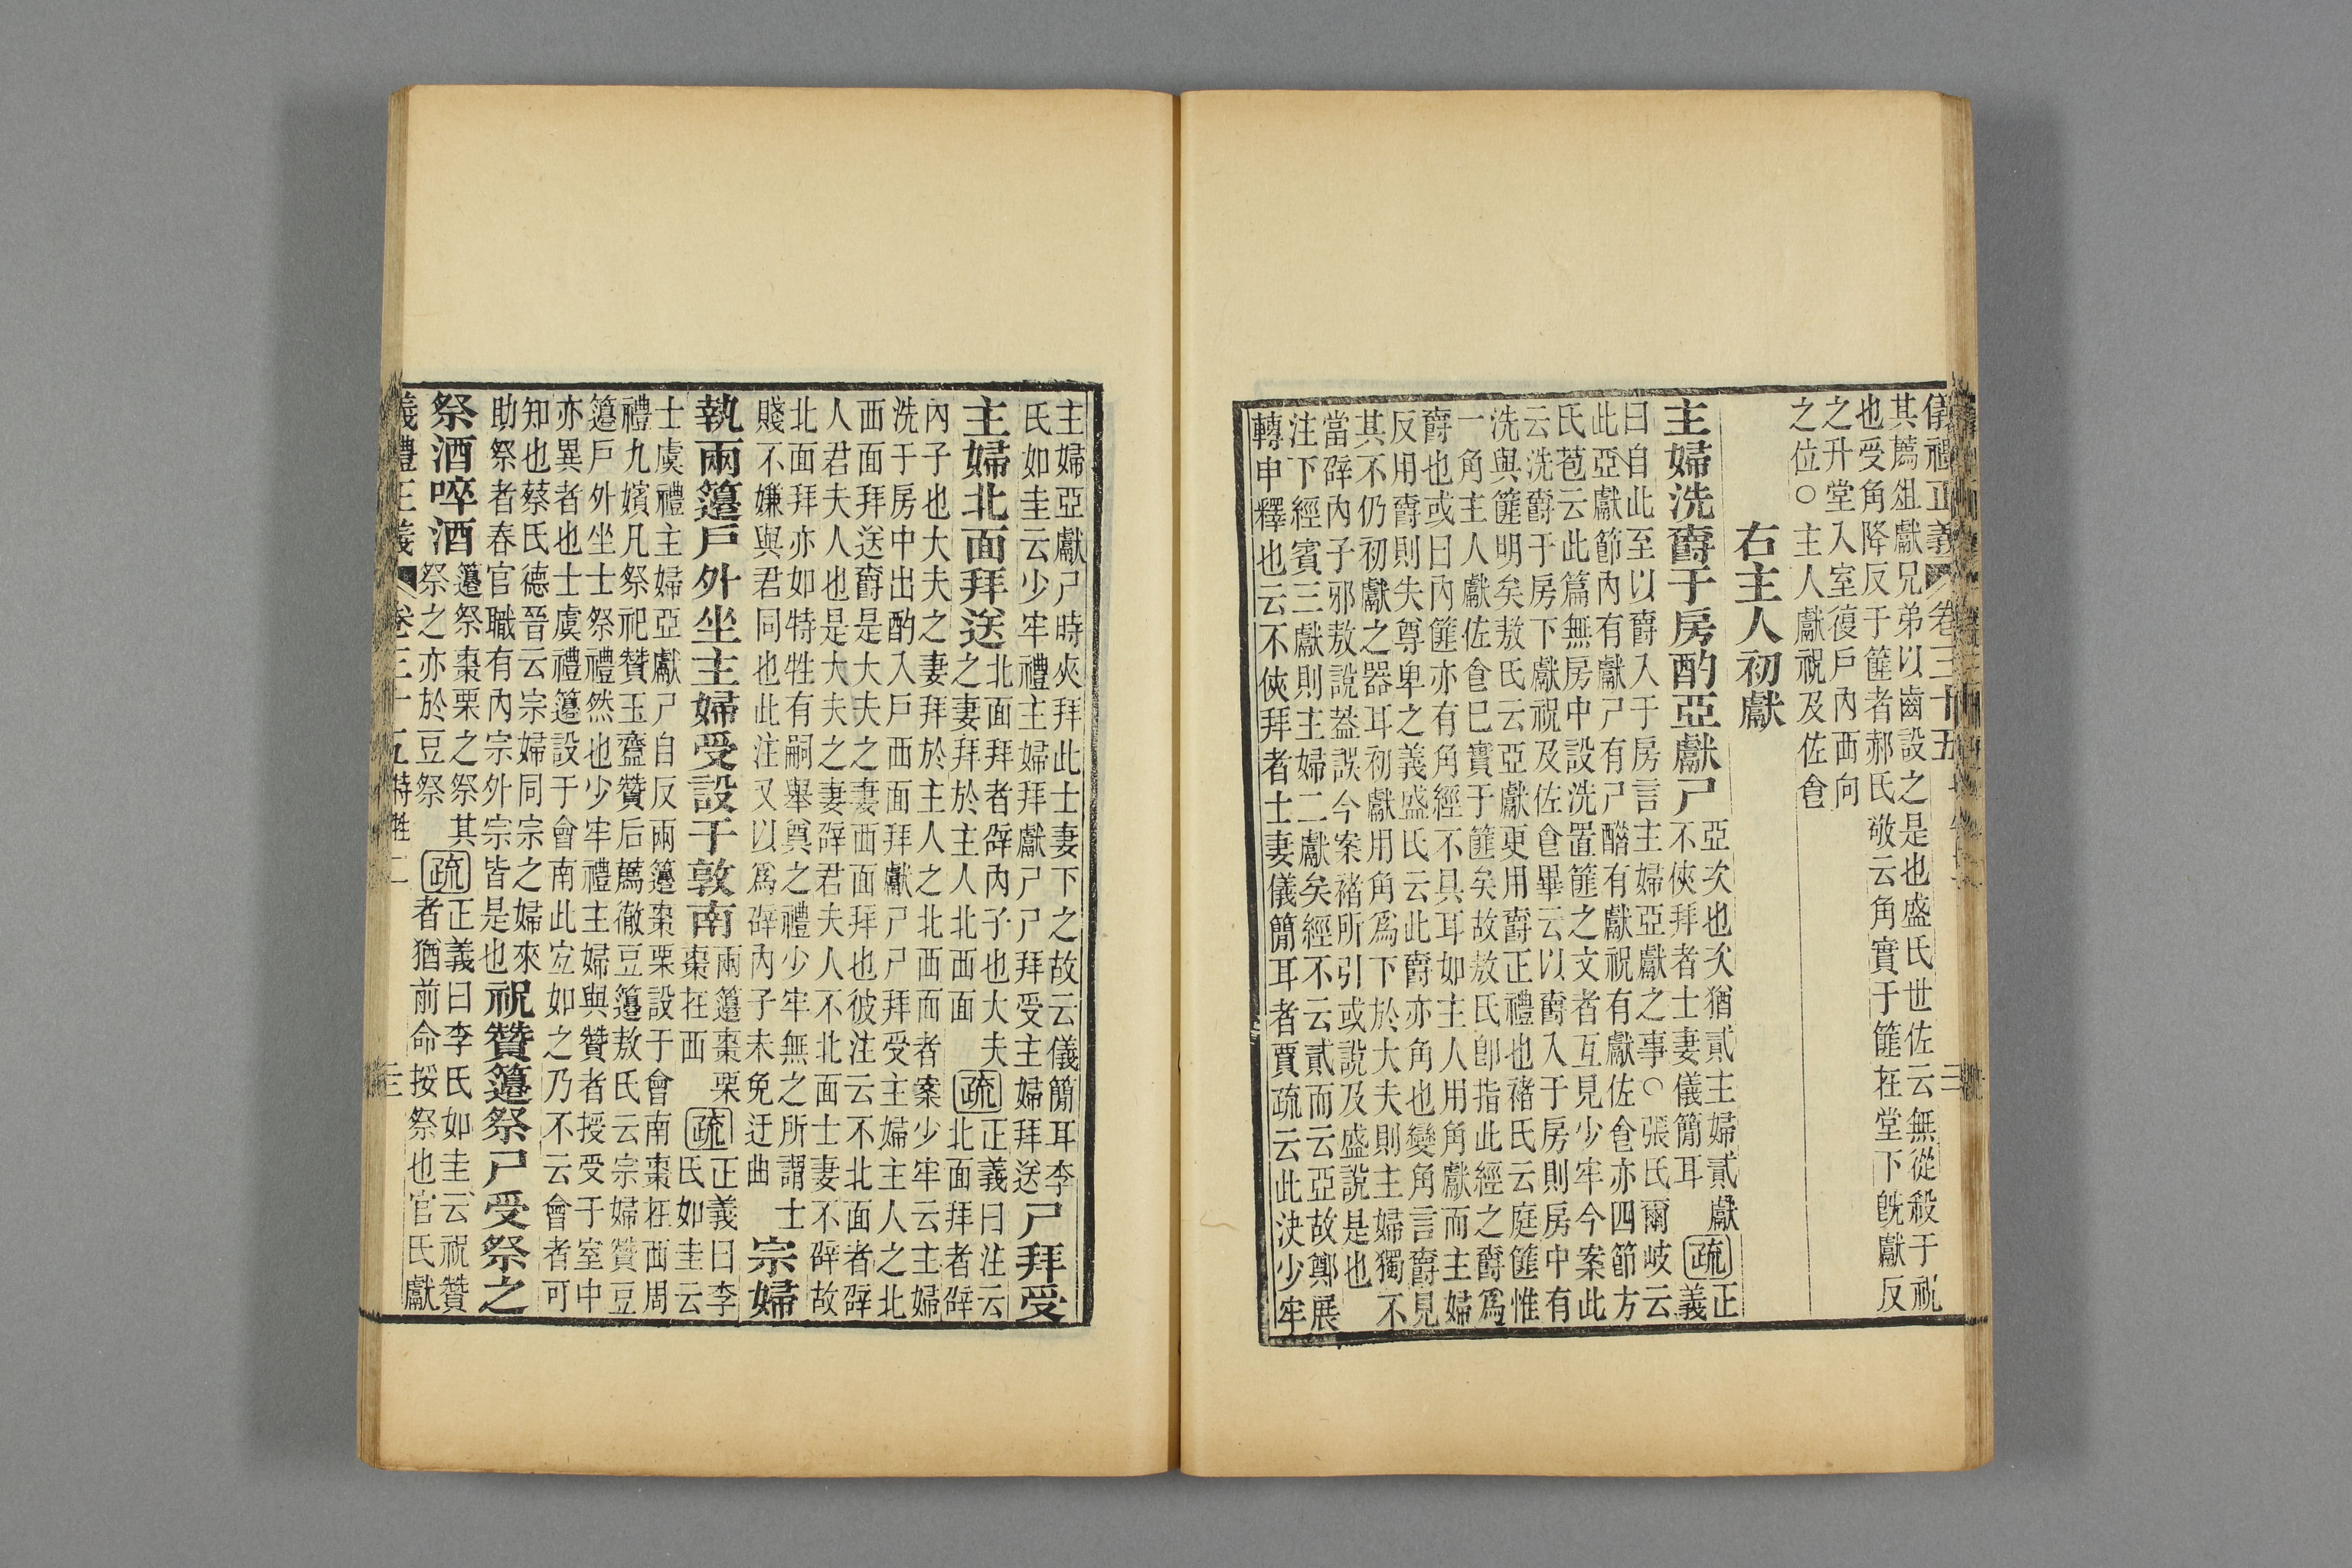 儀禮正義 卷三十五 三
其薦俎獻兄弟以齒設之是也盛氏世佐云無從殺于祝
也受角降反于篚者郝氏敬云角實于篚在堂下旣獻反
之升堂入室復戶內西向
之位○主人獻祝及佐食
右主人初獻
主婦洗爵于房酌亞獻尸亞次也次猶貳主婦貳獻
不俠拜者士妻儀簡耳疏正義
曰自此至以爵入于房言主婦亞獻之事○張氏爾岐云
此亞獻節內有獻尸有尸醋有獻祝有獻佐食亦四節方
氏苞云此篇無房中設洗置篚之文者互見少牢今案此
云洗爵于房下獻祝及佐食畢云以爵入于房則房中有
洗與篚明矣敖氏云亞獻更用爵正禮也褚氏云庭篚惟
一角主人獻佐食巳實于篚矣故敖氏卽指此經之爵爲
爵也或曰內篚亦有角經不具耳如主人用角獻而主婦
反用爵則失尊卑之義盛氏云此爵亦角也變角言爵見
其不仍初獻之器耳初獻用角爲下於大夫則主婦獨不
當辟內子邪敖說蓋誤今案褚所引或說及盛說是也
注下經賓三獻則主婦二獻矣經不云貳而云亞故鄭展
轉申釋也云不俠拜者士妻儀簡耳者賈疏云此決少牢
主婦亞獻尸時夾拜此士妻下之故云儀簡耳李
氏如圭云少牢禮主婦拜獻尸尸拜受主婦拜送尸拜受
主婦北面拜送北面拜者辟內子也大夫
之妻拜於主人北西面疏正義曰注云
北面拜者辟
內子也大夫之妻拜於主人之北西面者案少牢云主婦
洗于房中出酌入戶西面拜獻尸尸拜受主婦主人之北
西面拜送爵是大夫之妻西面拜也彼注云不北面者辟
人君夫人也是大夫之妻辟君夫人不北面士妻不辟故
北面拜亦如特牲有嗣舉奠之禮少牢無之所謂士
賤不嫌與君同也此注又以爲辟內子未免迂曲宗婦
執兩籩戶外坐主婦受設于敦南兩籩棗栗
棗在西疏正義曰李
氏如圭云
士虞禮主婦亞獻尸自反兩籩棗栗設于會南棗在西周
禮九嬪凡祭祀贊玉齍贊后薦徹豆籩敖氏云宗婦贊豆
籩戶外坐士祭禮然也少牢禮主婦與贊者授受于室中
亦異者也士虞禮籩設于會南此宜如之乃不云會者可
知也蔡氏德晉云宗婦同宗之婦來
助祭者春官職有內宗外宗皆是也祝贊籩祭尸受祭之
祭酒啐酒籩祭棗栗之祭其
祭之亦於豆祭疏正義曰李氏如圭云祝贊
者猶前命挼祭也官氏獻
儀禮正義 卷三十五特牲二 三